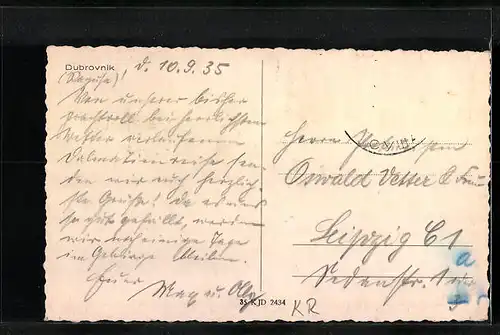 Dubrovnik
(Ragusa), d. 10.9.35
Von unserer bisher
prachtvoll bei herrlichstem
Wetter verlaufenen
Dalmatienreise sen-
den wir euch herzlich-
ste Grüße! Da es uns
so gut gefällt, werden
wir noch einige Tage
im Gebirge bleiben.
Euer
Max u. Olly
Herrn
Oswald Vetter & Frau
Leipzig C1
Sedanstr. 1
35 KJD 2434
KR